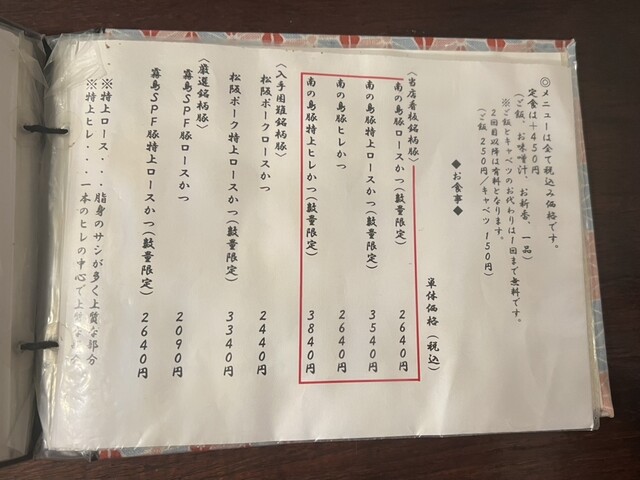 ◎メニューは全て税込み価格です。
定食は+450円
(ご飯、お味噌汁、お新香、一品)
※ご飯とキャベツのお代わりは1回まで無料です。
2回目以降は有料となります。
(ご飯 250円/キャベツ 150円)
◆お食事◆
単体価格(税込)
〈当店看板銘柄豚〉
南の島豚ロースかつ(数量限定) 2640円
南の島豚特上ロースかつ(数量限定) 3540円
南の島豚ヒレかつ 2640円
南の島豚特上ヒレかつ(数量限定) 3840円
〈入手困難銘柄豚〉
松阪ポークロースかつ 2440円
松阪ポーク特上ロースかつ(数量限定) 3340円
〈厳選銘柄豚〉
霧島SPF豚ロースかつ 2090円
霧島SPF豚特上ロースかつ(数量限定) 2640円
※特上ロース・・・脂身のサシが多く上質な部分
※特上ヒレ・・・・一本のヒレの中心で上質な部分